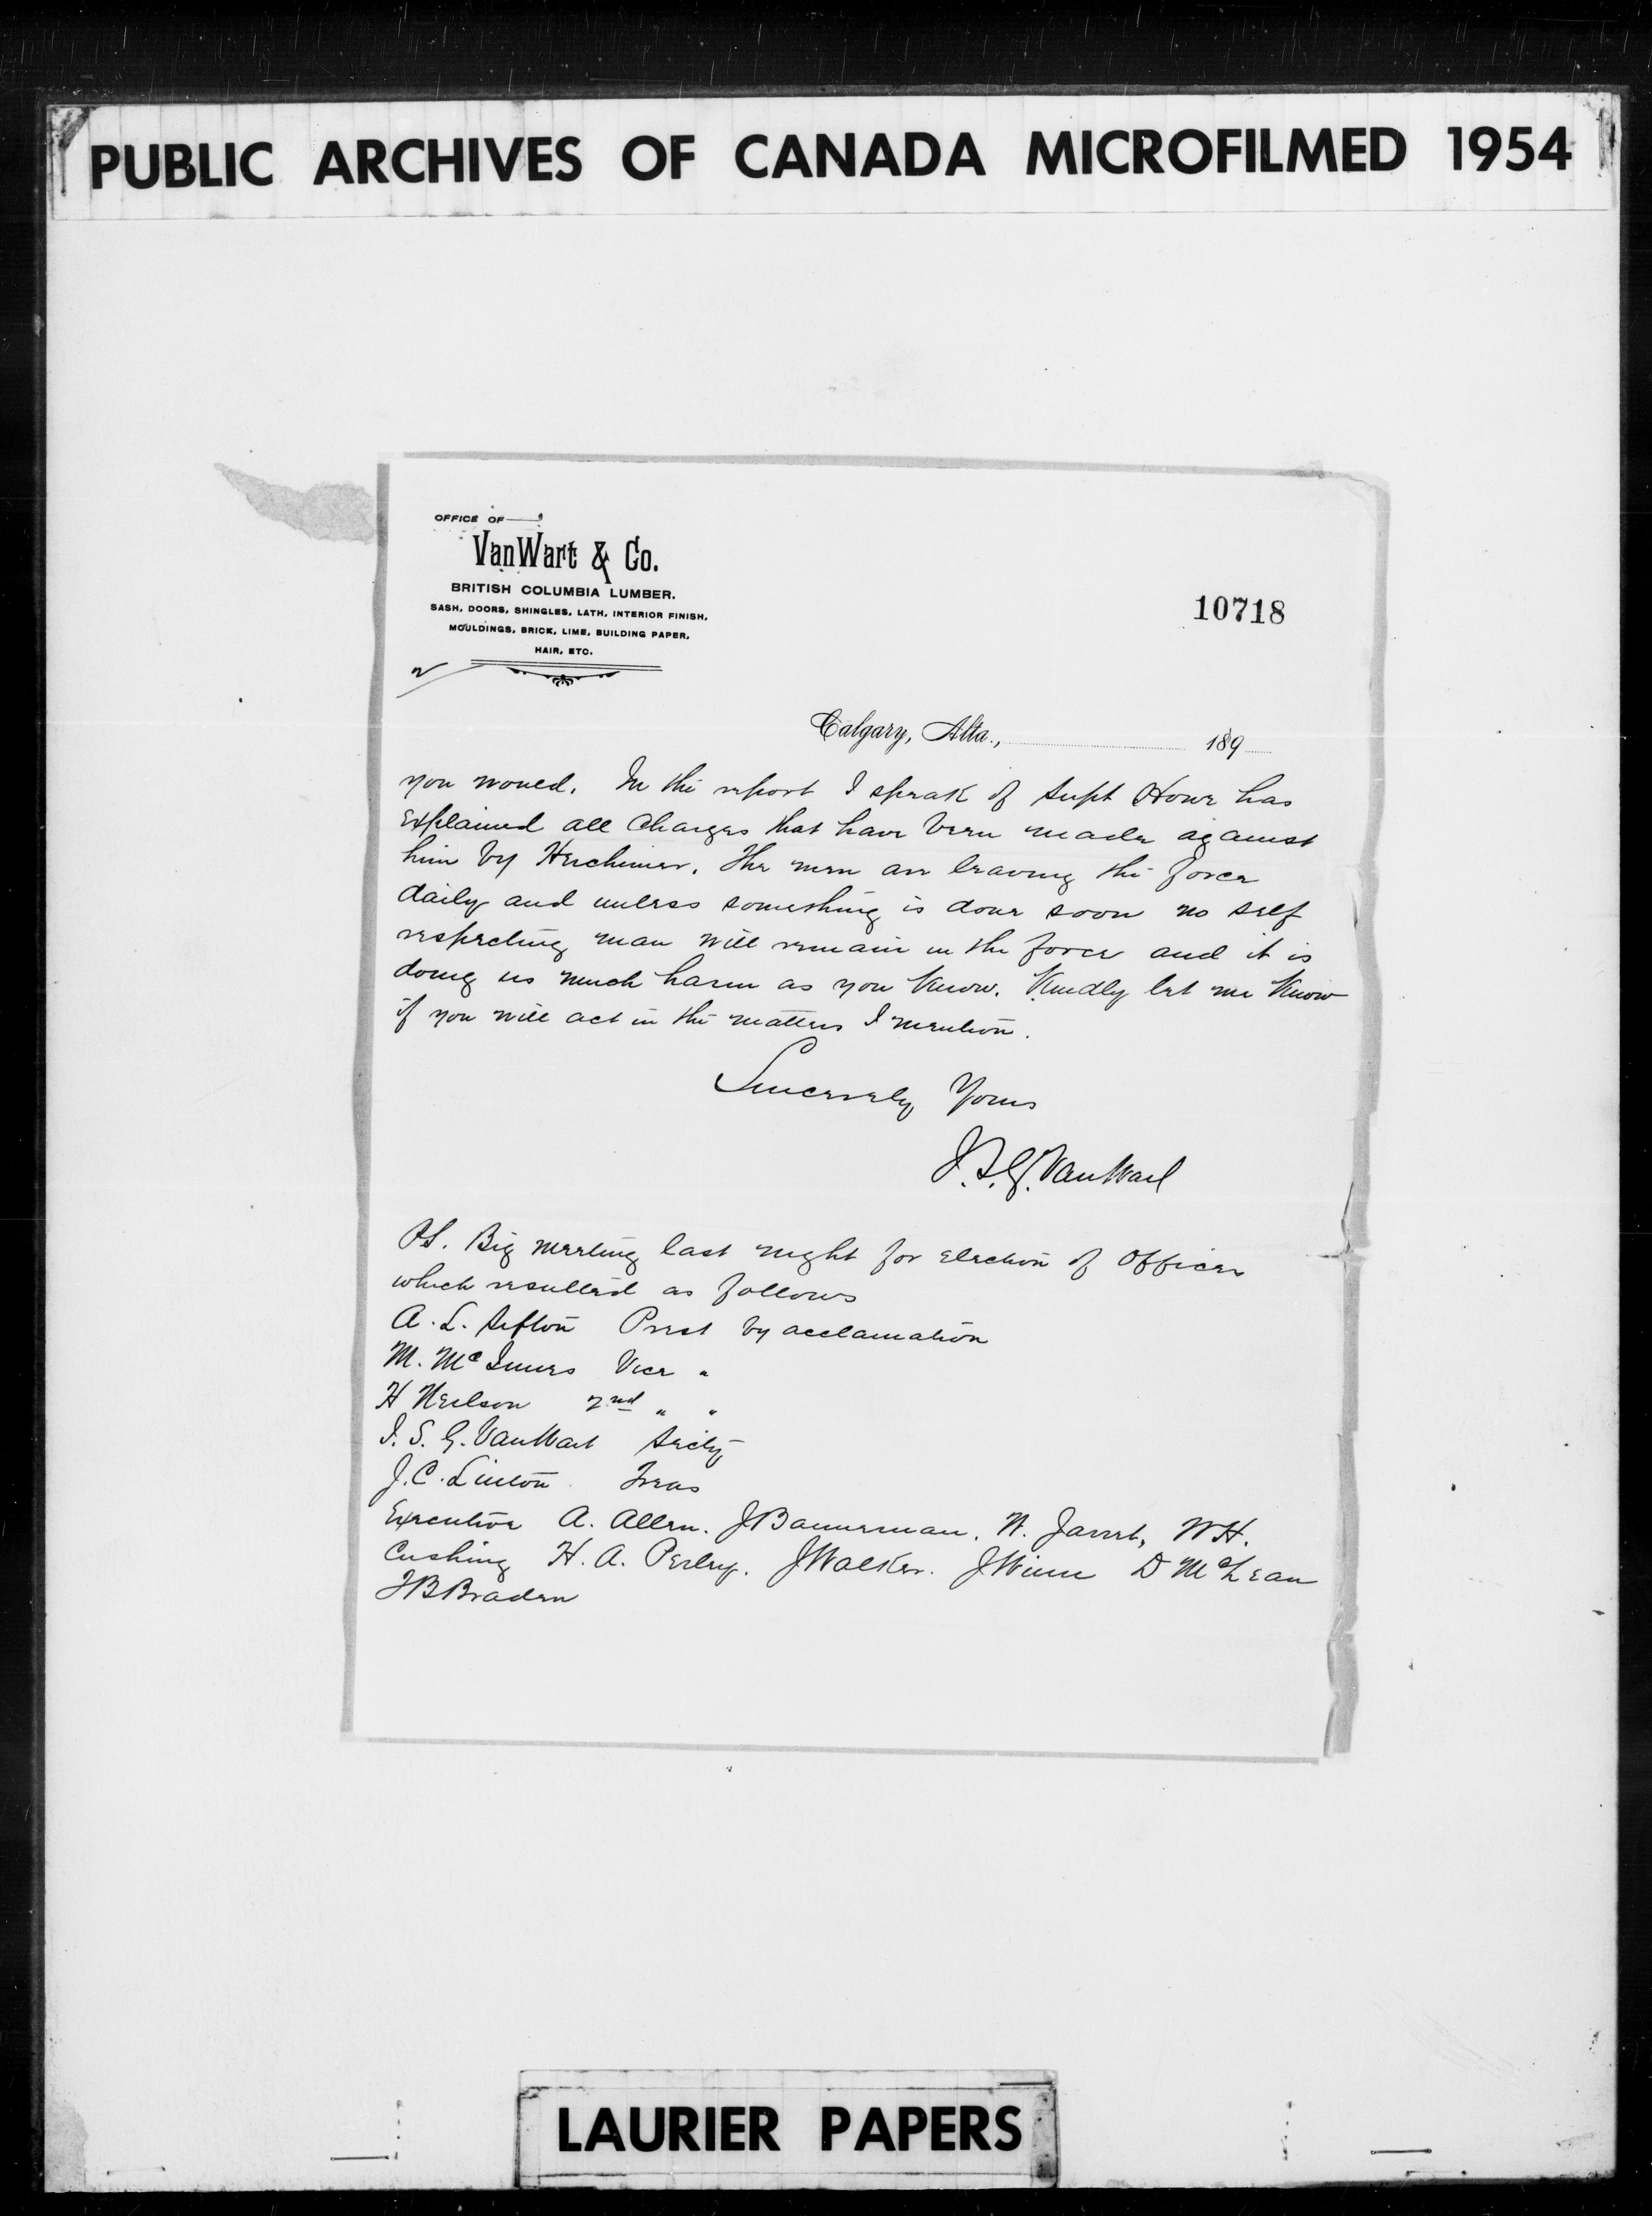 PUBLIC ARCHIVES OF CANADA MICROFILMED 1954
OFFICE OF
VanWart & Co.
BRITISH COLUMBIA LUMBER.
SASH, DOORS, SHINGLES, LATH, INTERIOR FINISH,
MOULDINGS, BRICK, LIME, BUILDING PAPER,
HAIR, ETC.
10718
2
Calgary, Alta., 189
you would. In the report I speak of Supt Howe has
Explained all Charges that have been made against
him by Herchimer. The men are leaving the force
daily and unless something is done soon no self
respecting man will remain in the force and it is
doing us much harm as you Know. Kindly let me Know
if you will act in the matters I mention.
Sincerely Yours
I.S.G. VanWart
PS. Big meeting last night for Election of Officers
which resulted as follows
A. L. Sifton Prest by acclamation
M. McInnes Vice "
H Neilson 2nd " "
I. S. G. VanWart Secty
J. C. Linton Treas
Executive A. Allen. J Bannerman. W. Jarret, W H.
Cushing H. A. Perley. J Walker. J Winn D McLean
T B Braden
LAURIER PAPERS